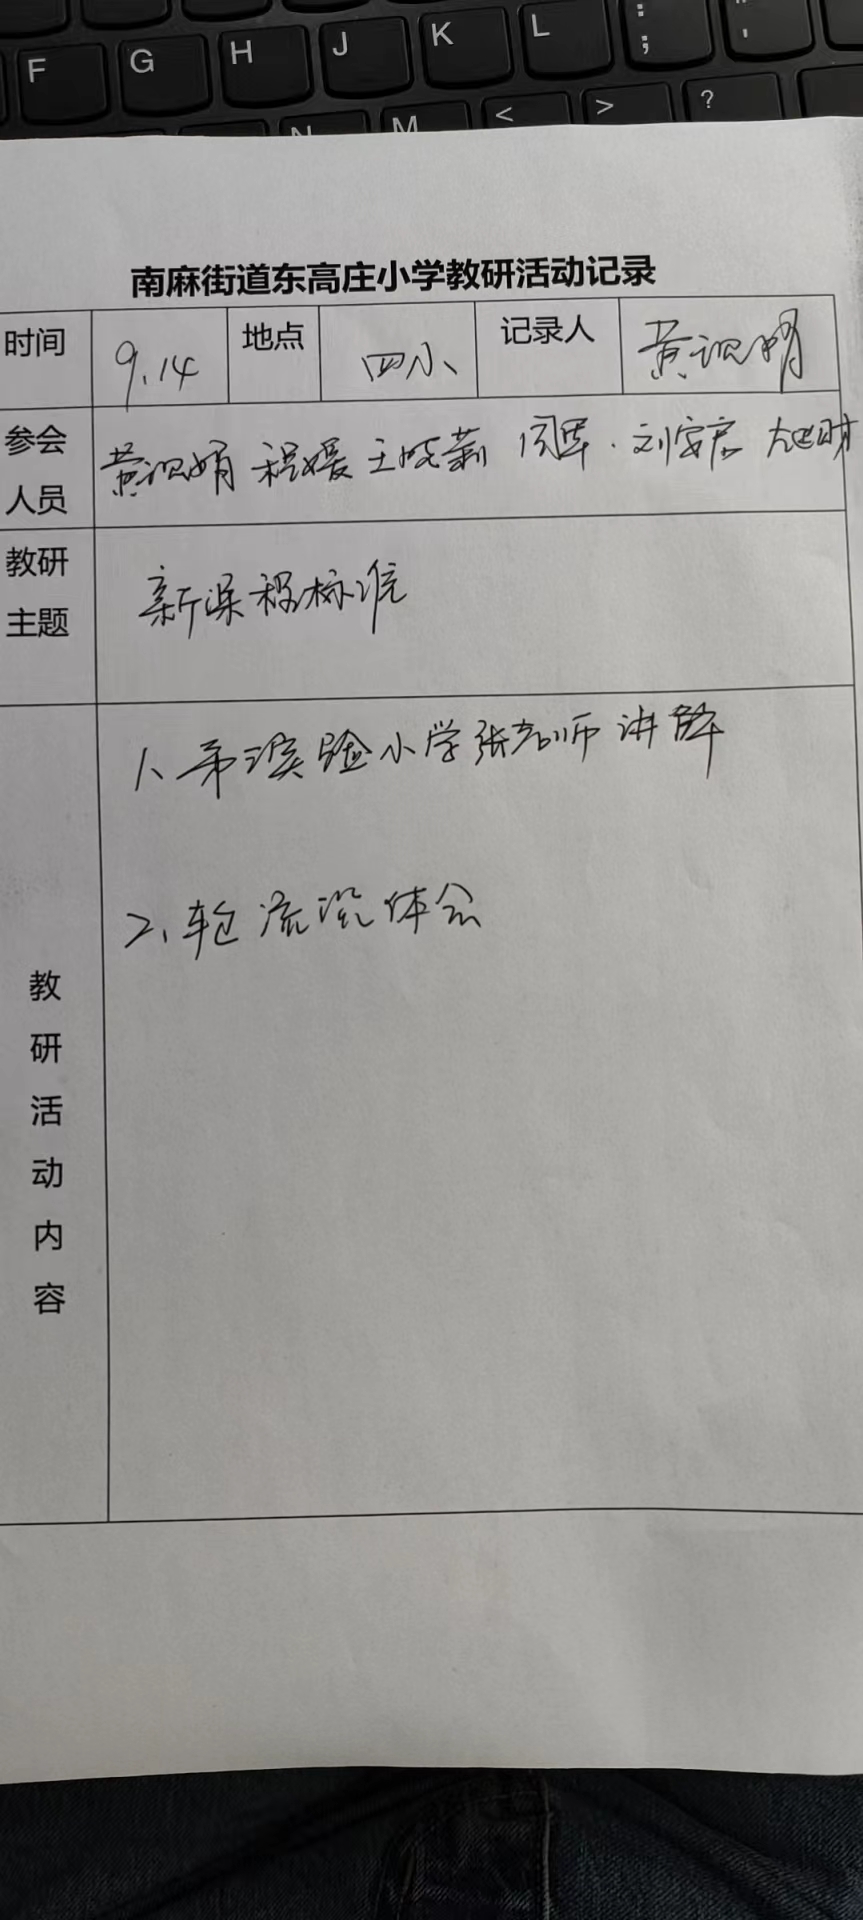 F G H J K L : ; " '
N M < > ?
南麻街道东高庄小学教研活动记录
时间 9.14 地点 四小 记录人 黄砚娟
参会人员 黄砚娟 程媛 王晓莉 闫军. 刘安宏
教研主题 新课程标准
1、 实验小学张老师讲解
2、轮流说体会
教研活动内容